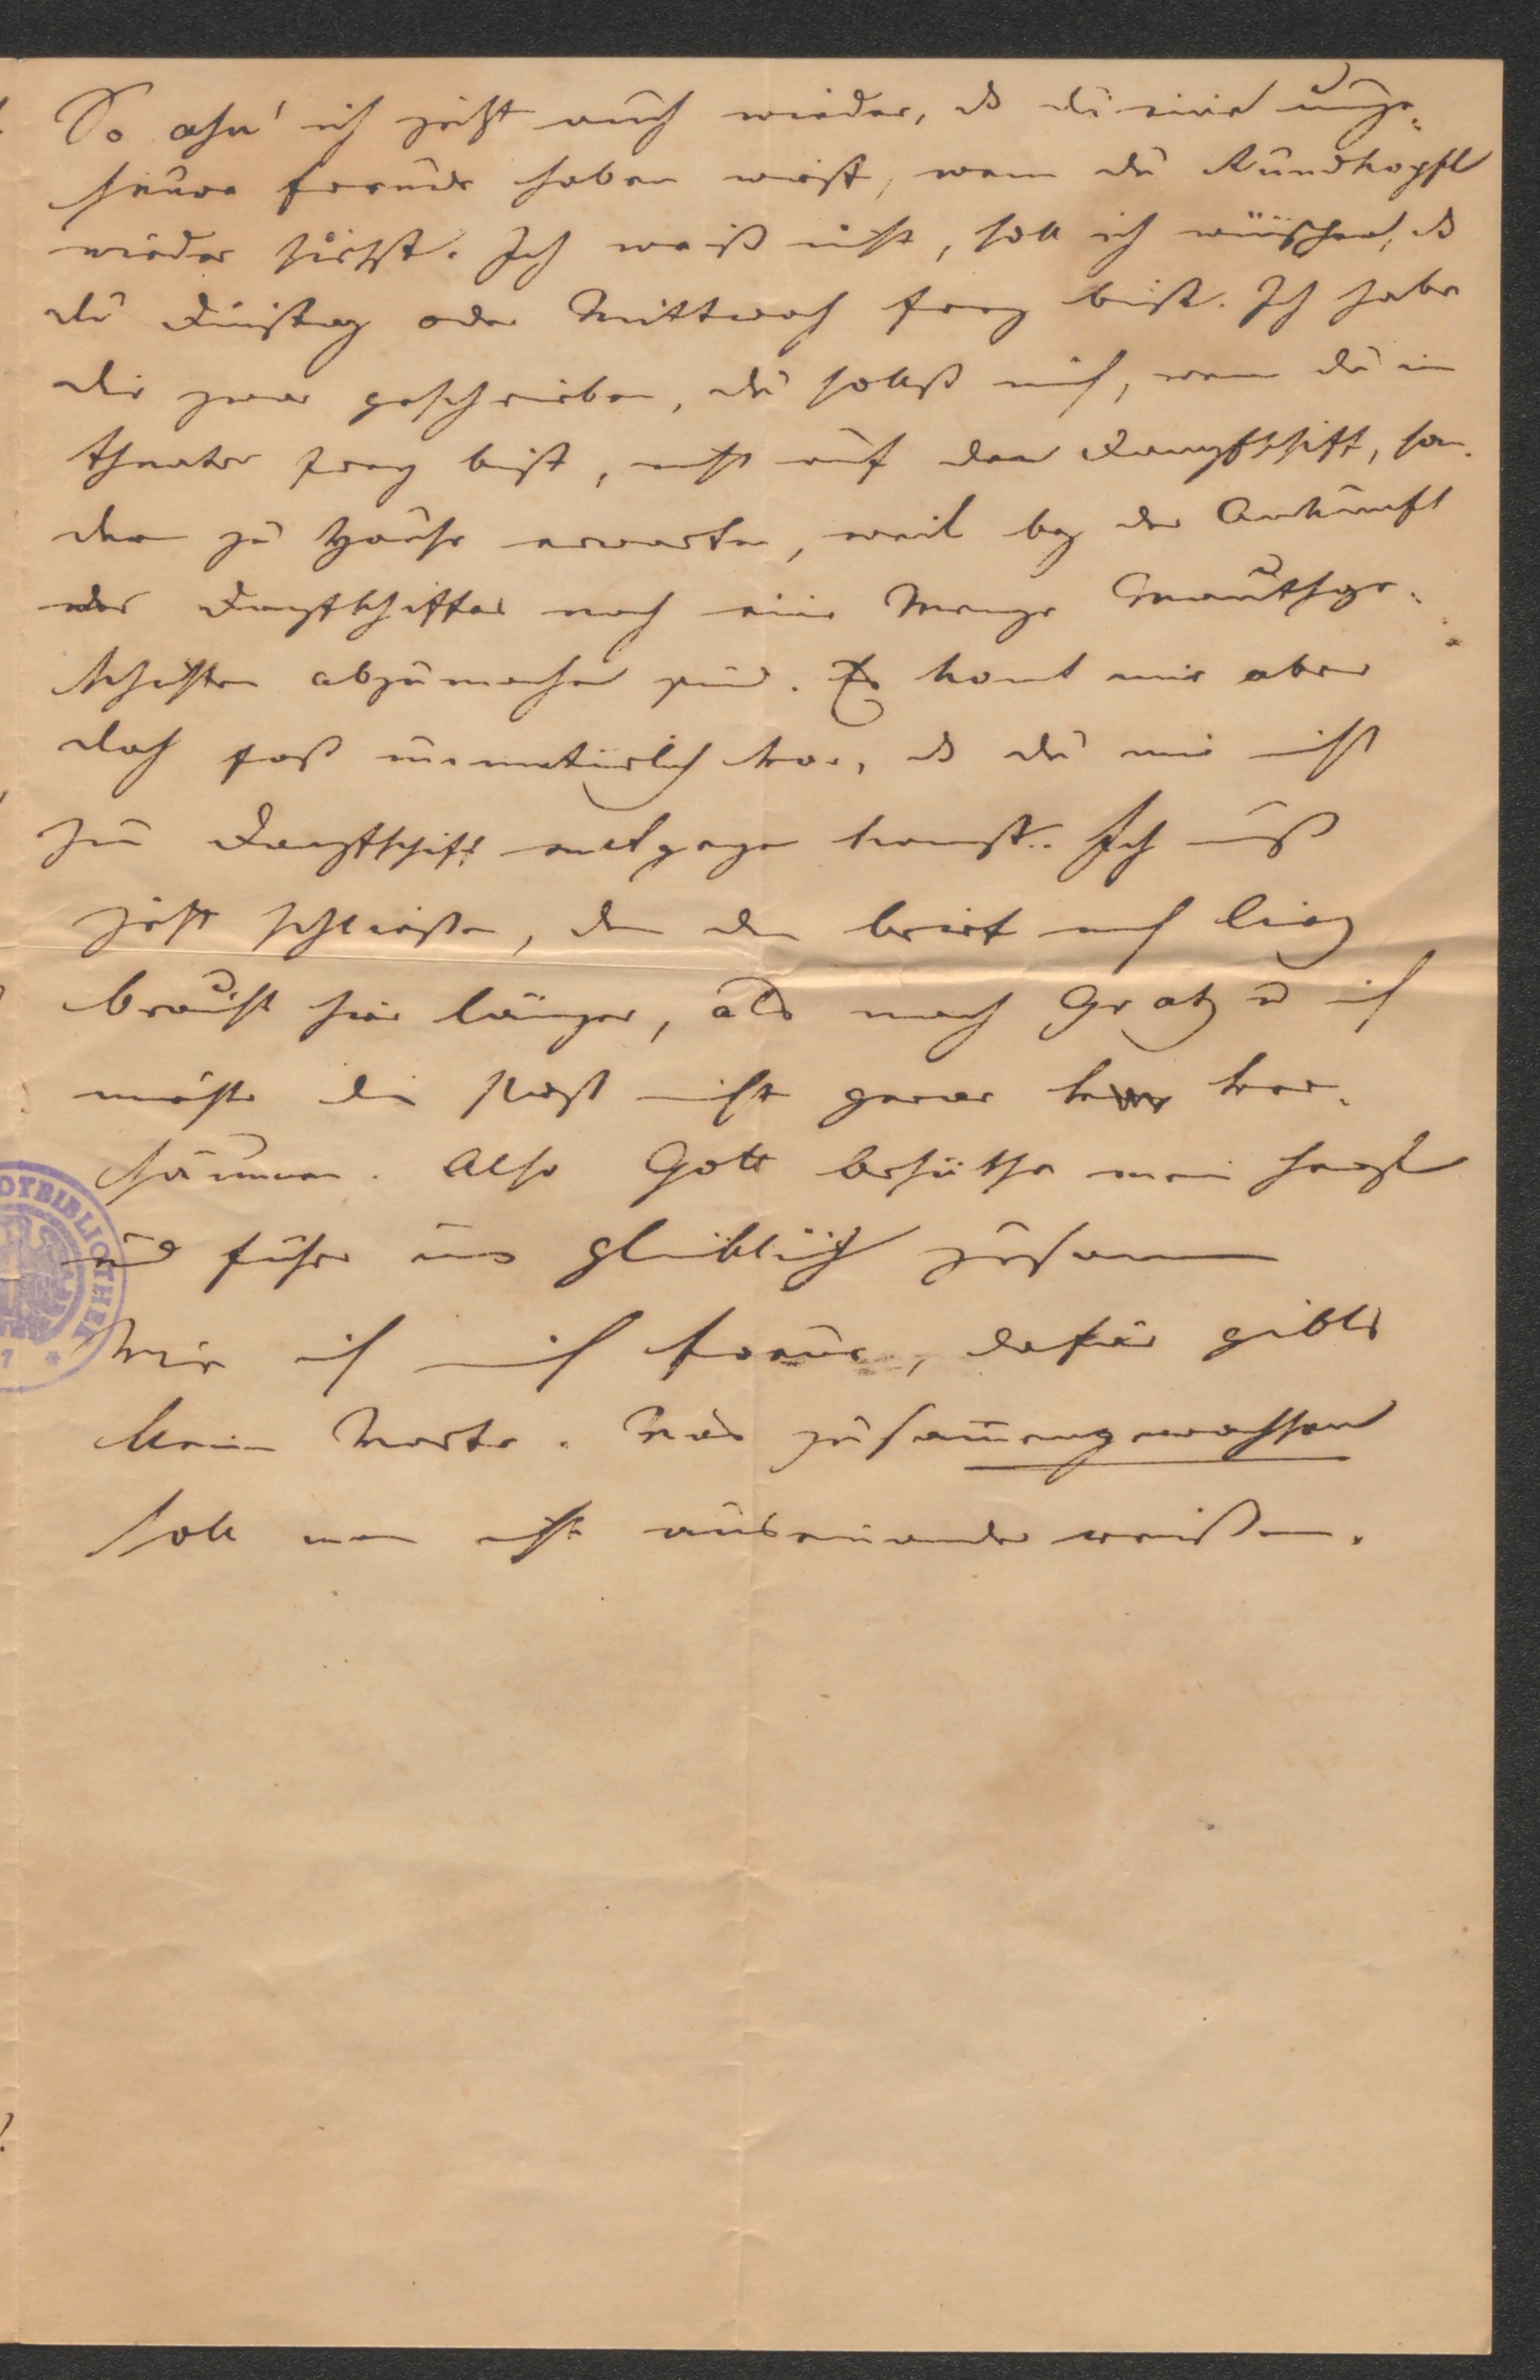 So ahn' ich jetzt auch wieder, ds du eine unge-
heure Freude haben wirst, wenn du Rundkopfl
wieder siehst. Ich weiß nicht, soll ich wünschen, ds
du Dinstag oder Mittwoch frey bist. Ich habe
dir zwar geschrieben, du sollst mich, wenn du im
Theater frey bist, nicht auf dem Dampfschiff, son-
dern zu Hause erwarten, weil bey der Ankunft
des Dampfschiffes noch eine Menge Mauthge-
schäfte abzumachen sind. Es komt mir aber
doch fast unnatürlich vor, ds du mir nicht
zum Dampfschiff entgegen komst. Ich muß
jetzt schließen, denn der Brief nach Linz
braucht hier länger, als nach Gratz u ich
möchte die Post nicht gerne ver-
säumen. Also Gott behüthe mein
und führe uns glücklich zusamen
Wie ich mich freue, dafür gibts
keine Worte. Was zusamengewachsen
soll man nicht auseinander reißen.
DTBIBLIOTHEK
7 *